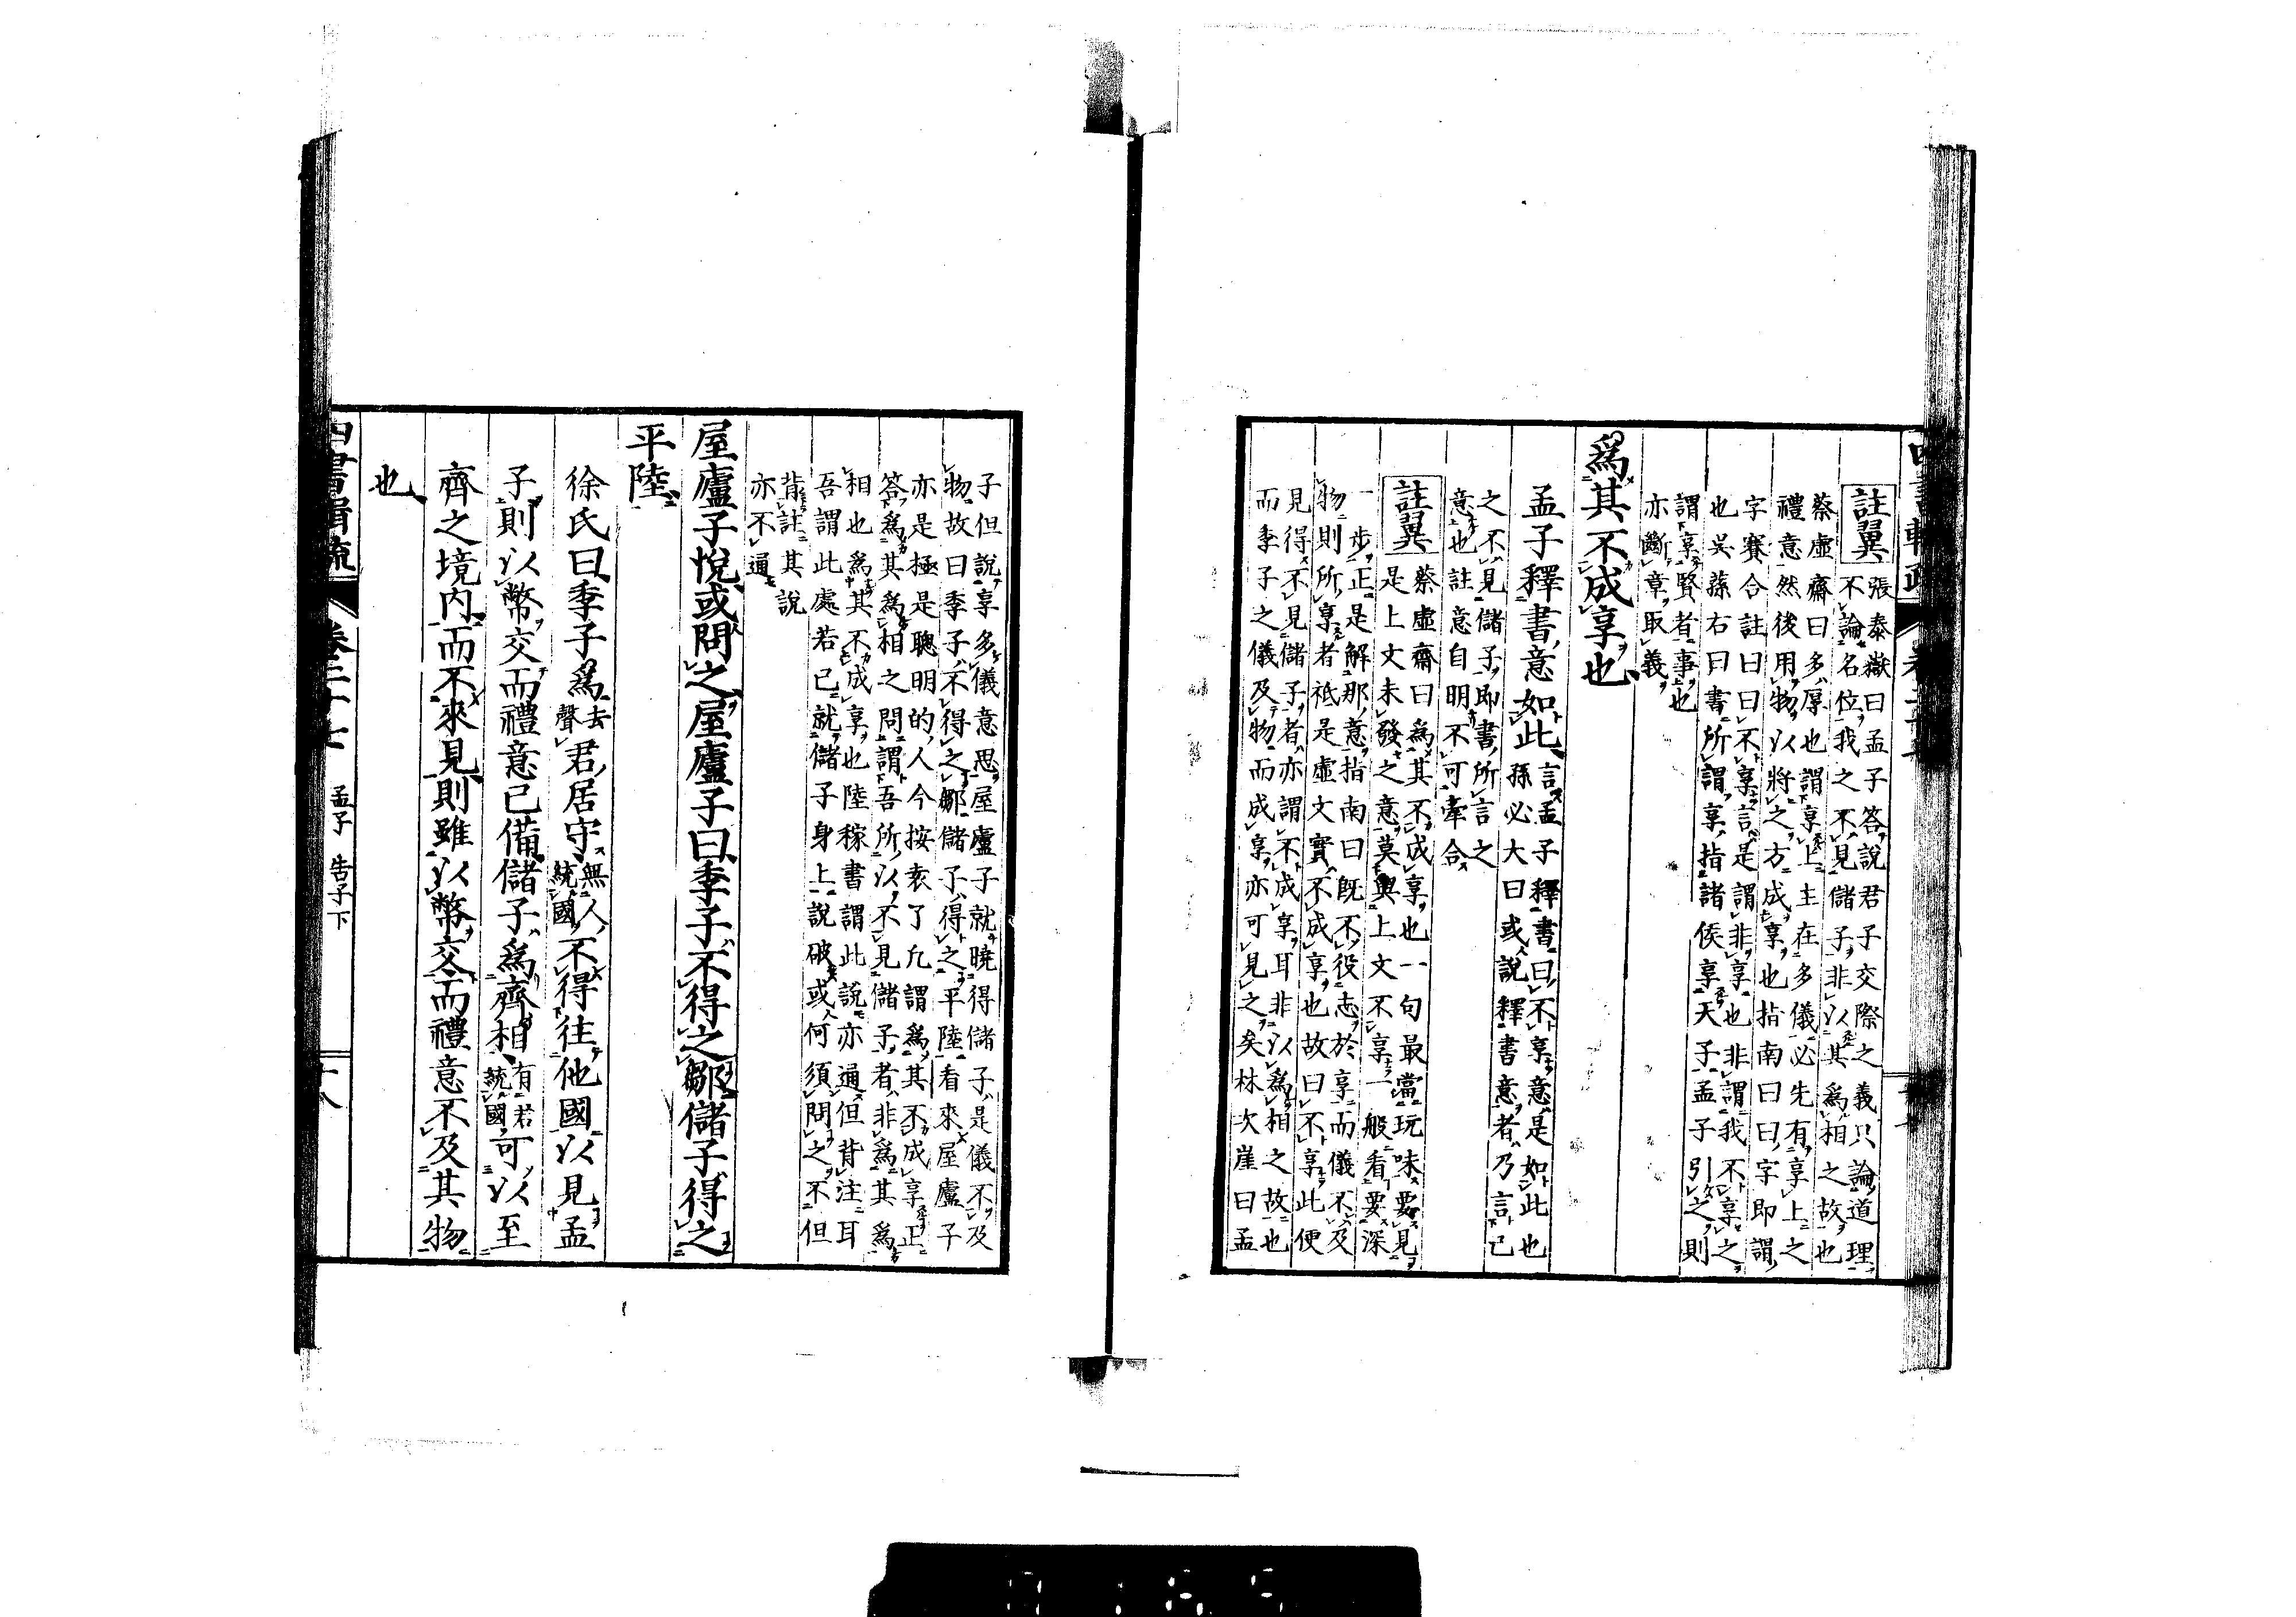 註翼
張泰嶽曰孟子答說君子交際之義只論道理
不論名位我之不見儲子非以其爲相之故也
蔡虛齋曰多厚也謂享上主在多儀必先有享上之
禮意然後用物以將之方成享也指南曰曰字即謂
字賽合註曰曰不享言是謂非享也非謂我不享之
也吳蓀右曰書所謂享指諸侯享天子孟子引之則
謂享賢者事也
亦斷章取義
爲其不成享也
孟子釋書意如此
言孟子釋書曰不享意是如此也
孫必大曰或說釋書意者乃言己
之不見儲子即書所言之
意也註意自明不可牽合
註翼
蔡虛齋曰爲其不成享也一句最當玩味要見
是上文未發之意莫與上文不享一般看要深
一步正是解那意指南曰既不役志於享而儀不及
物則所享者祇是虛文實不成享也故曰不享此便
見得不見儲子者亦謂不成享耳非以爲相之故也
而季子之儀及物而成享亦可見之矣林次崖曰孟
子但說享多儀意思屋廬子就曉得儲子是儀不及
物故曰季子不得之鄒儲子得之平陸看來屋廬子
亦是極是聰明的人今按袁了凡謂爲其不成享正
答爲其爲相之問謂吾所以不見儲子者非爲其爲
相也爲其不成享也陸稼書謂此說亦通但背注耳
吾謂此處若已就儲子身上說破或何須問之不但
背註其說
亦不通
屋廬子悅或問之屋廬子曰季子不得之鄒儲子得之
平陸
徐氏曰季子爲去聲君居守無人統國不得往他國以見孟
子則以幣交而禮意已備儲子爲齊相有君統國可以至
齊之境內而不來見則雖以幣交而禮意不及其物
也
四書輯疏 卷二十七 孟子 告子下 十八